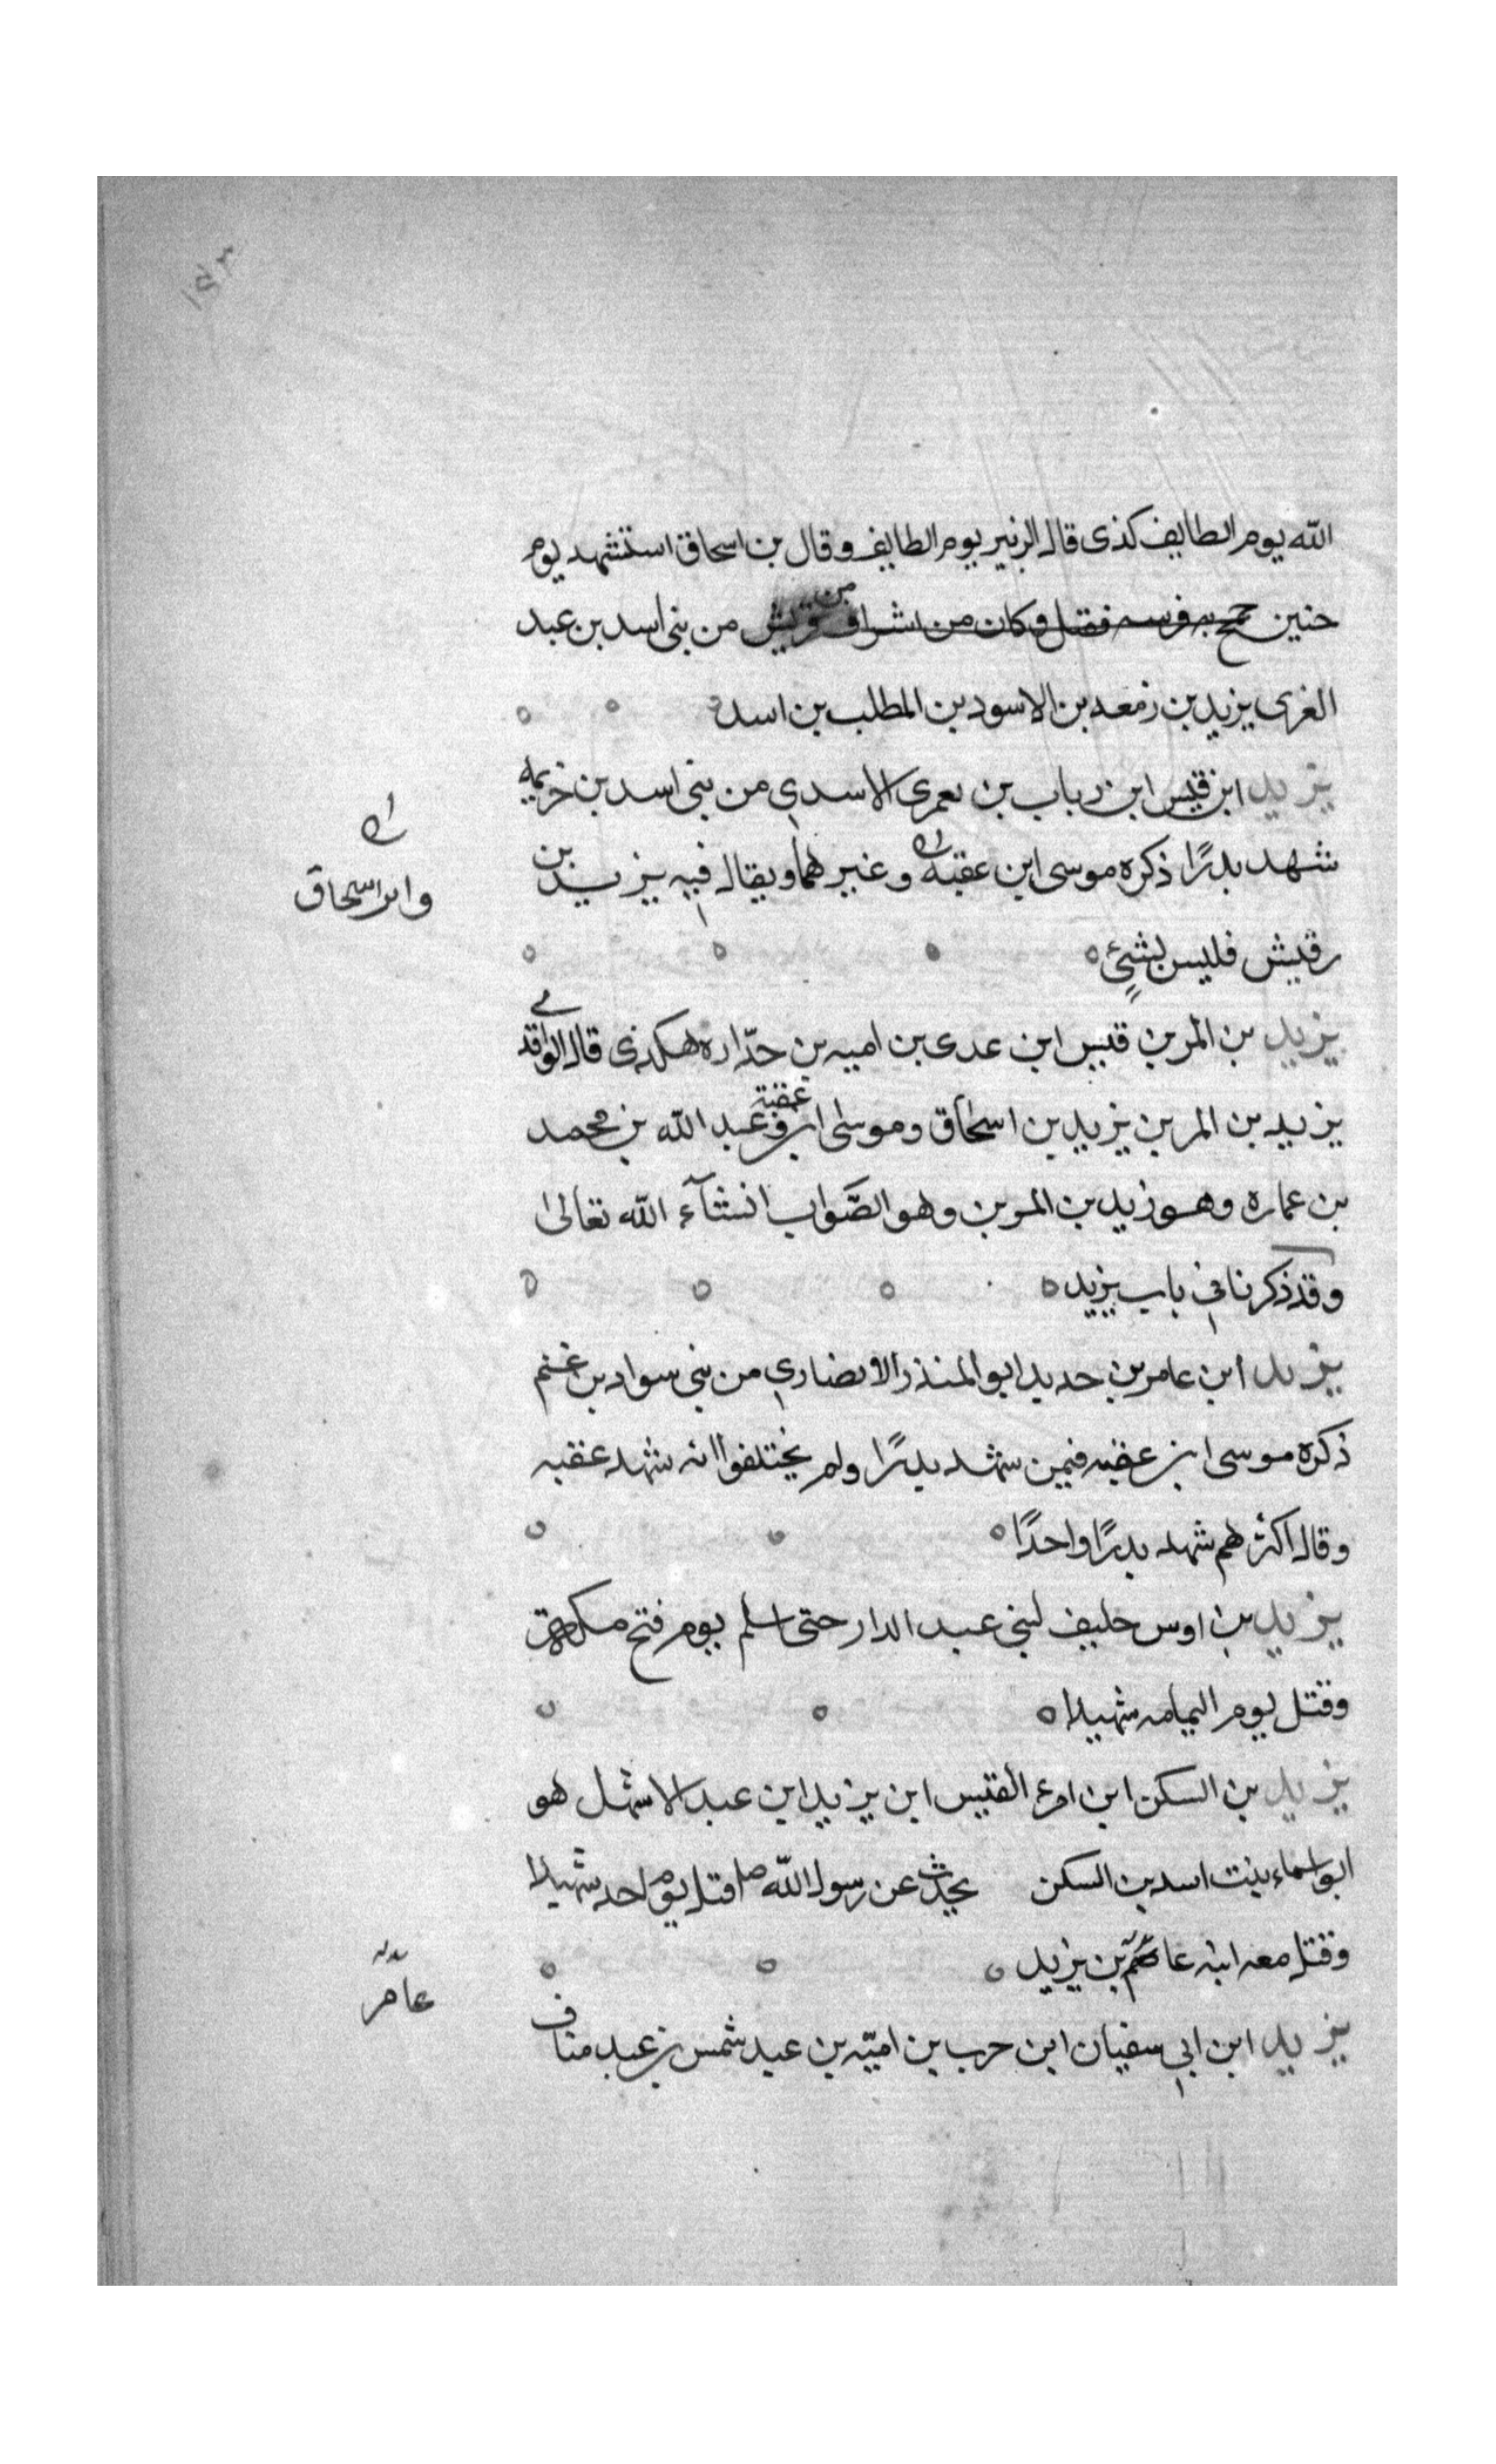 الله يوم الطايف كذى قال الزبير يوم الطايف وقال بن اسحاق استشهد يوم
حنين جمح به فرسه فقتل وكان من اشراف قريش من من بنى اسد بن عبد
العزى يزيد بن زمعه بن الاسود بن المطلب بن اسد
يزيد ابن قيس ابن رباب بن يعمرى الاسدي من بنى اسد بن خزيمه
شهد بدرًا ذكره موسى ابن عقبه وغيرهما ويقال فيه يزيد بن
وابن اسحاق
رقيش فليس بشيٍ
يزيد بن المرين قيس ابن عدى بن اميه بن حدّاره هكذى قال الواقدي
يزيد بن المرين يزيد بن اسحاق وموسى ابن عقبة وعبد الله بن محمد
بن عماره وهو زيد بن المرين وهو الصَّواب انشآء الله تعالى
وقد ذكرنا في باب يزيد
يزيد ابن عامر بن حديد ابو المنذر الانصاري من بني سواد بن غنم
ذكره موسى ابن عقبه فيمن شهد بدرًا ولم يختلفوا انه شهد عقبه
وقال اكثرهم شهد بدرًا واحدًا
يزيد بن اوس حليف لبني عبد الدار حتى اسلم يوم فتح مكه
وقتل يوم اليمامه شهيدا
يزيد بن السكن ابن امرء القيس ابن يزيد ابن عبد الاشهل هو
ابو اسماء بنت اسد بن السكن يحدث عن رسول الله صلم قتل يوم احد شهيدا
وقتل معه ابنه عامر بن يزيد
عامر
يزيد ابن ابي سفيان ابن حرب بن اميّه بن عبد شمس بن عبد مناف